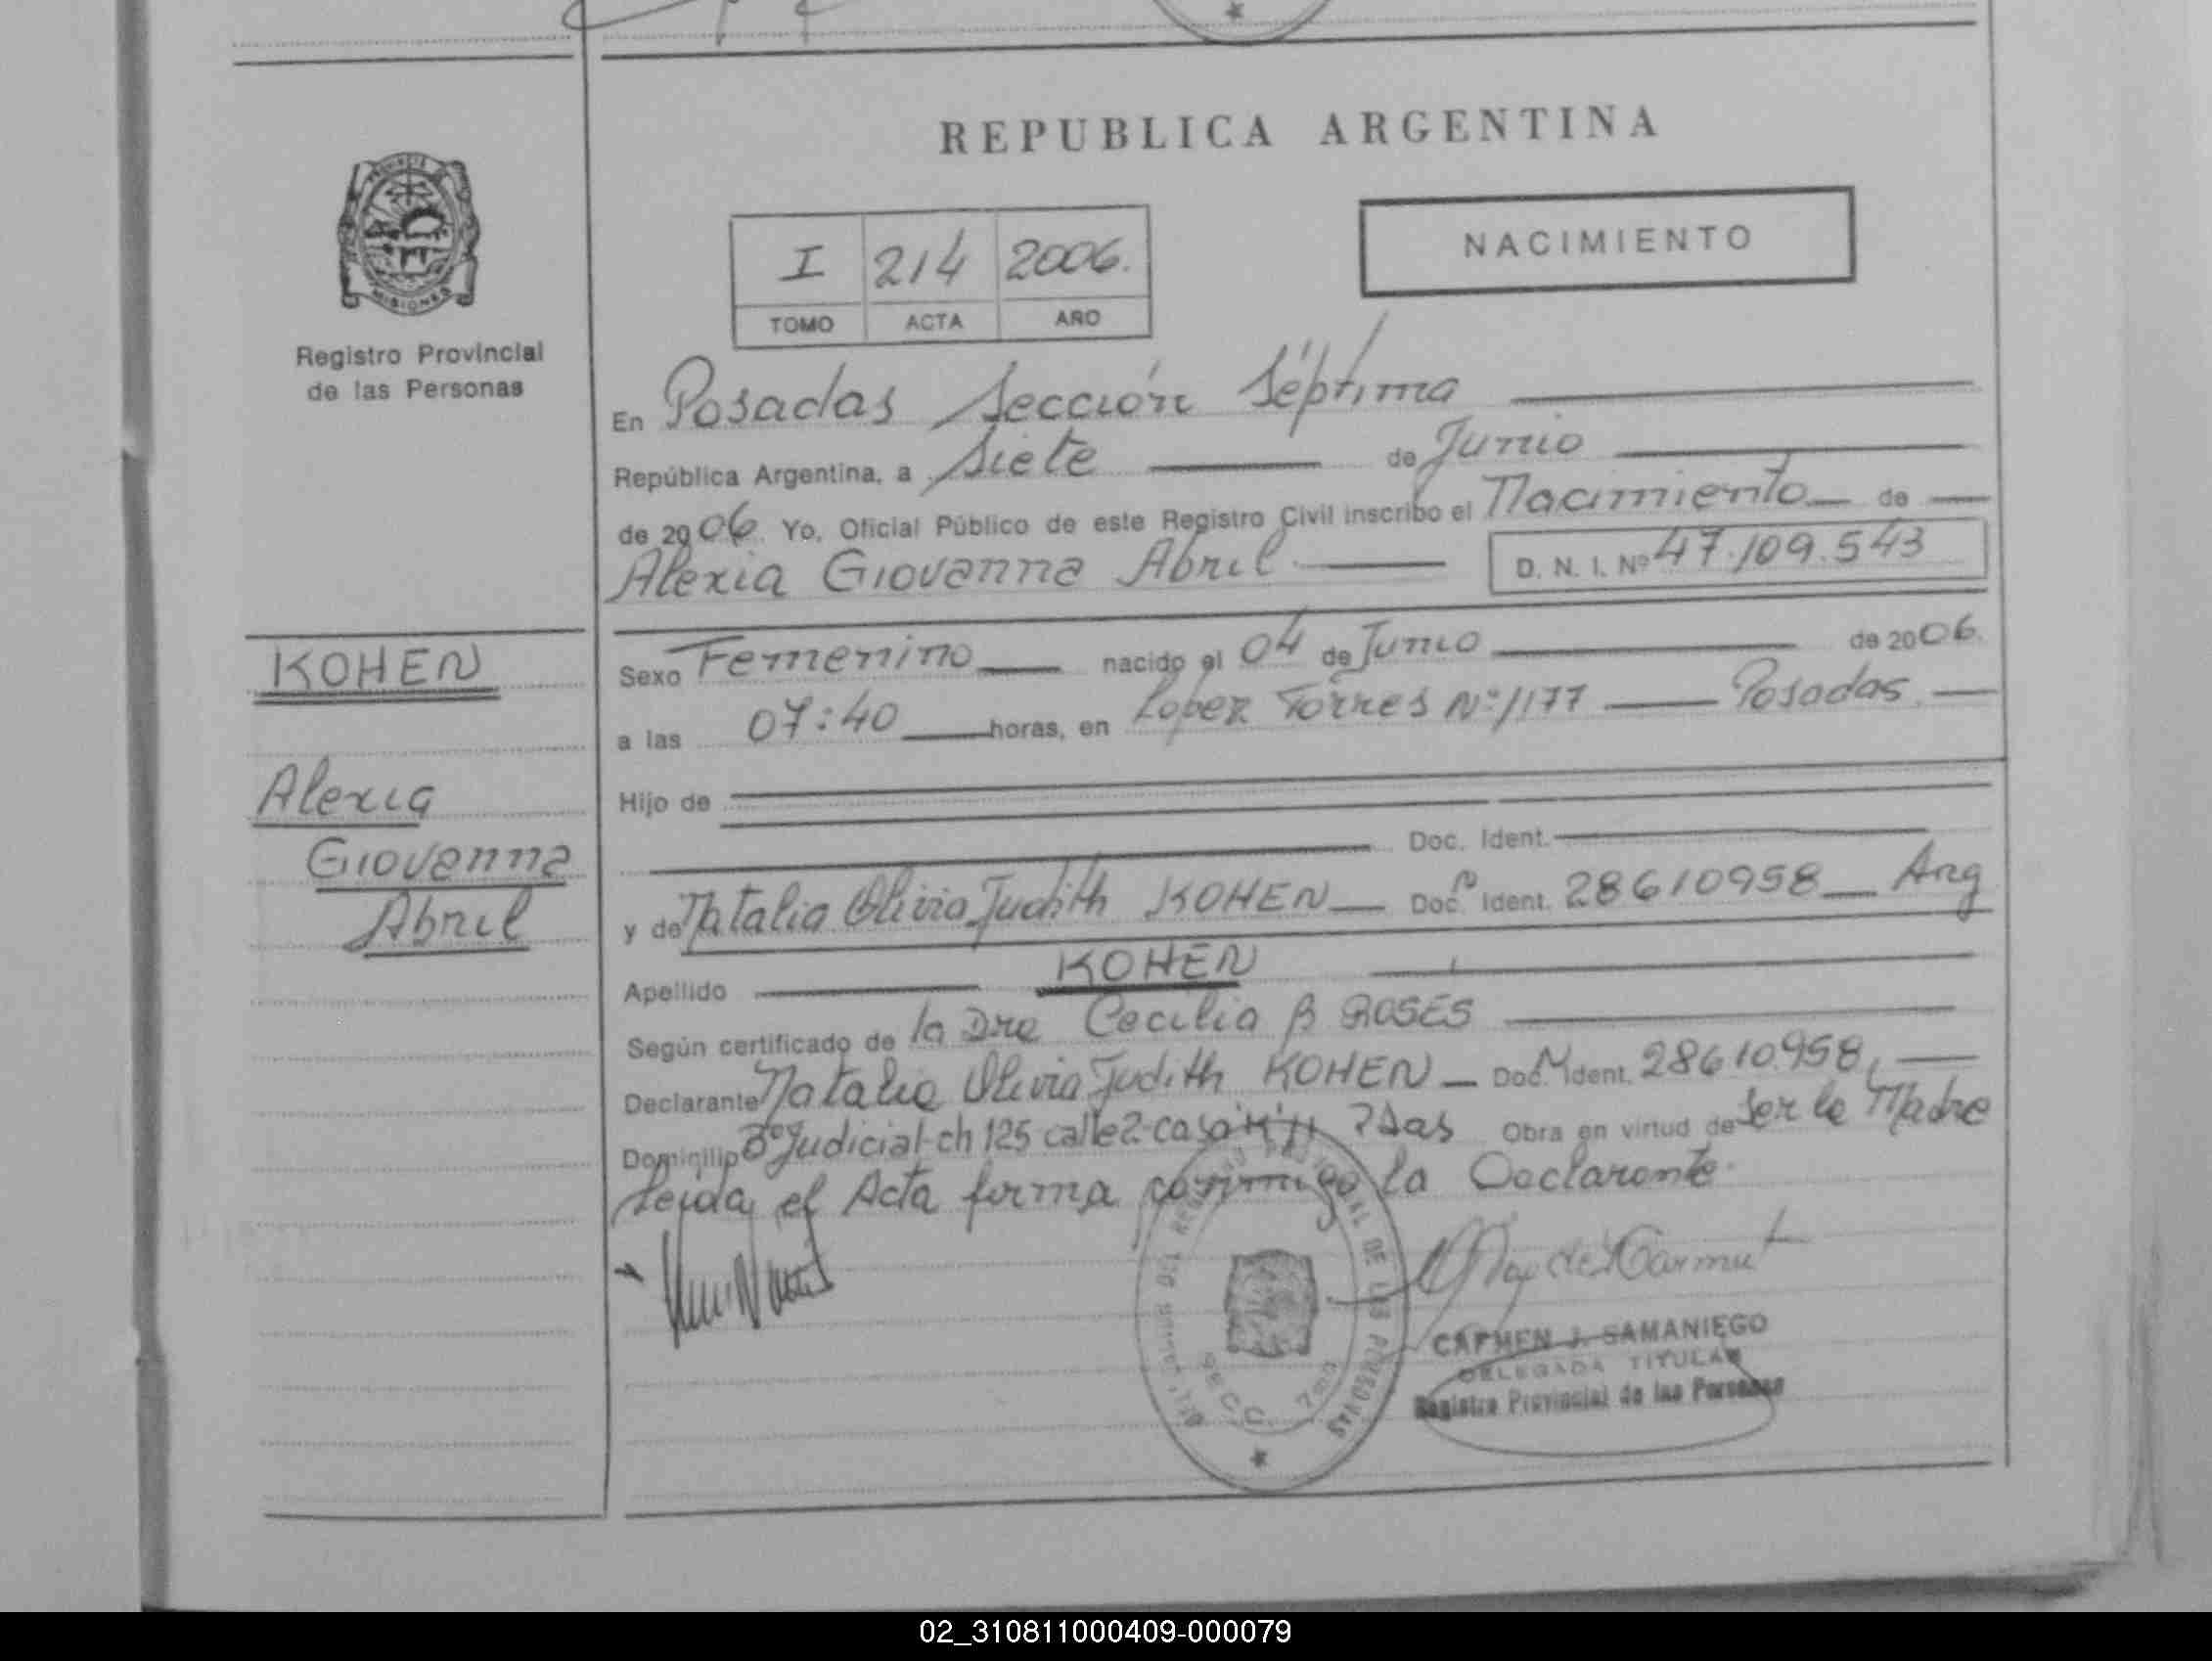 REPUBLICA ARGENTINA
PROVINCIA
MISIONES
Registro Provincial
de las Personas
I 214 2006.
TOMO ACTA AÑO
NACIMIENTO
En Posadas Sección Séptima
República Argentina, a Siete de Junio
de 2006. Yo, Oficial Público de este Registro Civil inscribo el Nacimiento de
Alexia Giovanna Abril D. N. I. Nº 47.109.543
KOHEN
Alexia
Giovanna
Abril
Sexo Femenino nacido el 04 de Junio de 2006.
a las 07:40 horas, en Lopez Torres Nº 1177 Posadas.
Hijo de
Doc. Ident.
y de Natalia Olivia Judith KOHEN Doc. Ident. 28610958 Arg
Apellido KOHEN
Según certificado de la Dra Cecilia B ROSES
Declarante Natalia Olivia Judith KOHEN Doc. Ident. 28610.958,
Domicilio Bº Judicial-ch 125 calle 2-casa Pdas Obra en virtud de Ser la Madre
Leida el Acta firma conmigo la Declarante.
REGISTRO PROVINCIAL DE LAS PERSONAS
SECC. 7ma
CARMEN J. SAMANIEGO
DELEGADA TITULAR
Registro Provincial de las Personas
02_310811000409-000079